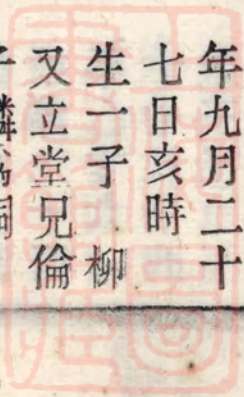 年九月二十
七日亥時
生一子 柳
又立堂兄倫